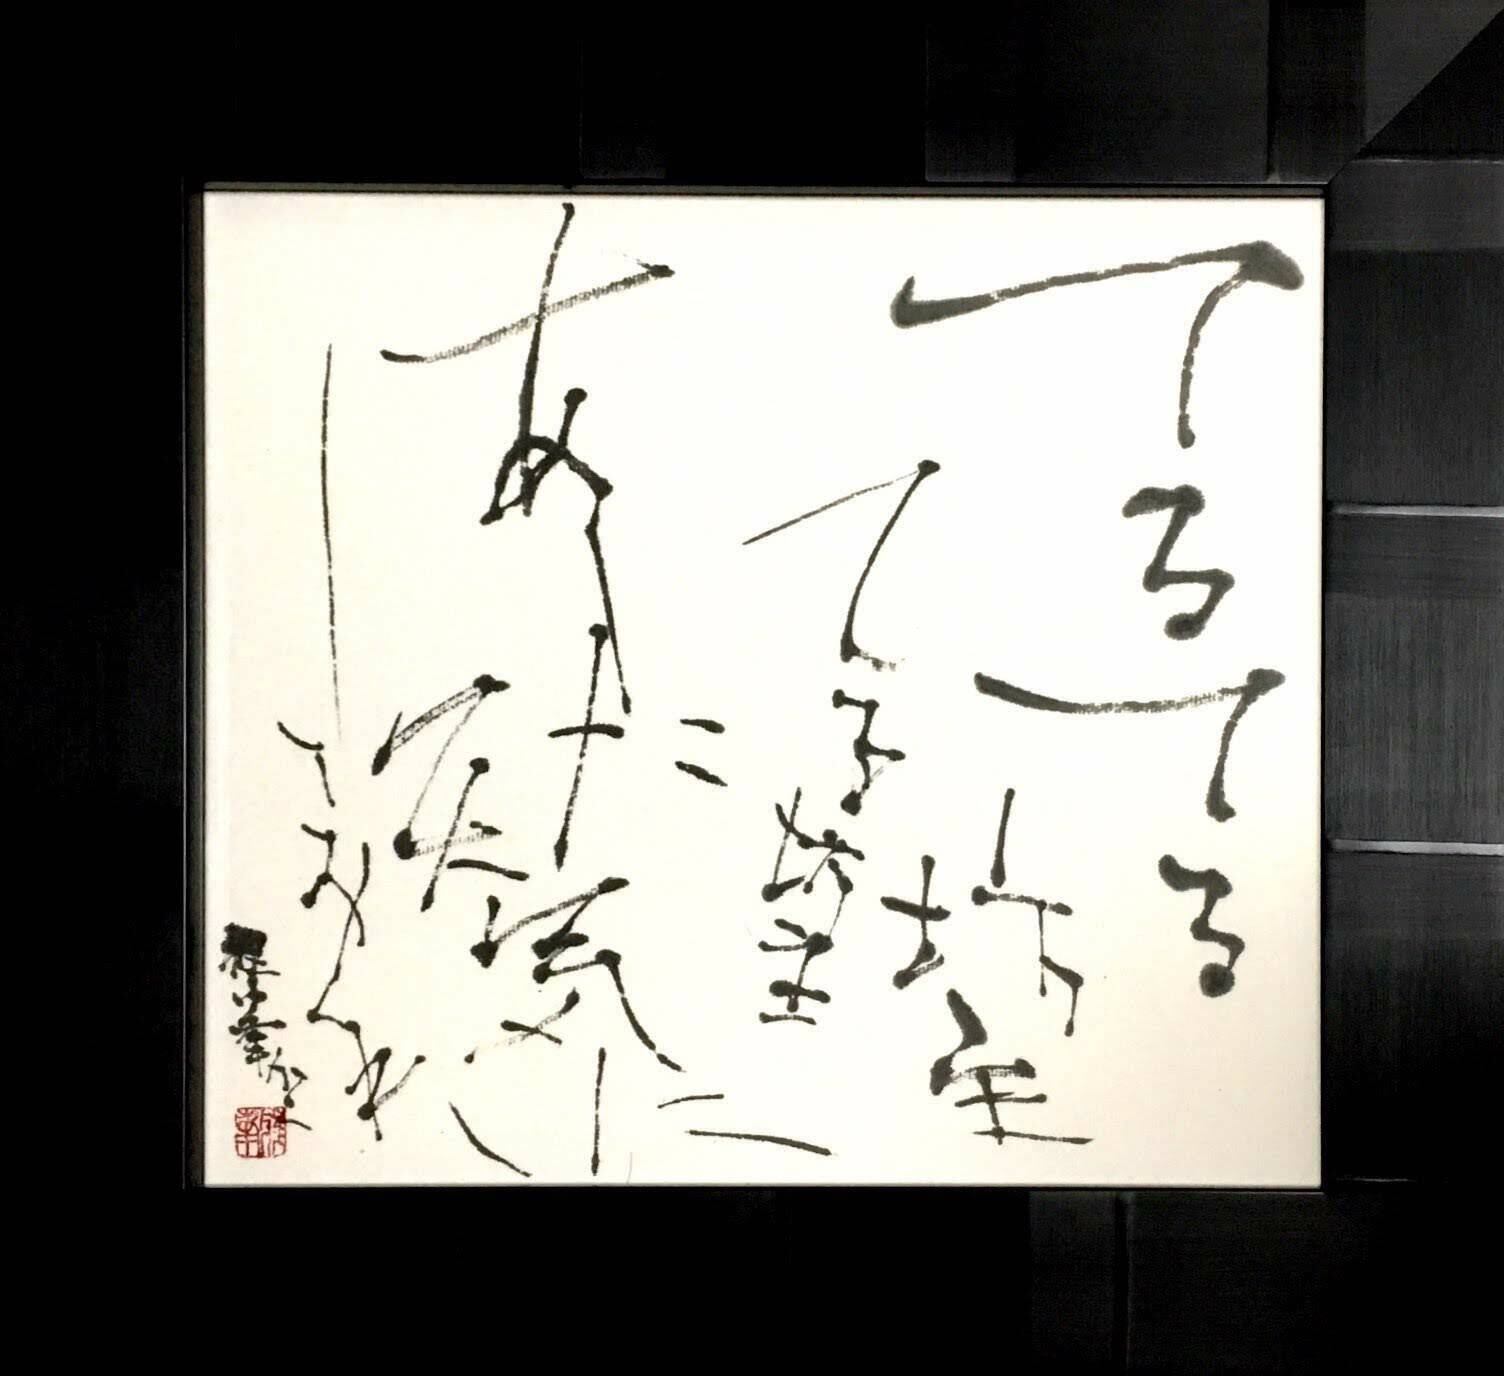 てるてる
坊主
てる坊主
あーした
天気に
しておくれ